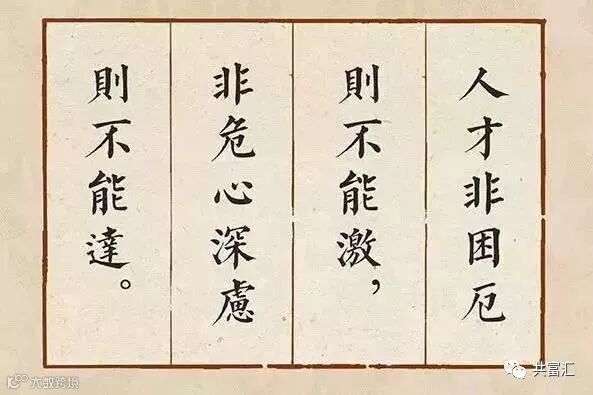 人才非困厄
則不能激，
非危心深慮
則不能達。
共富汇
大数跨境